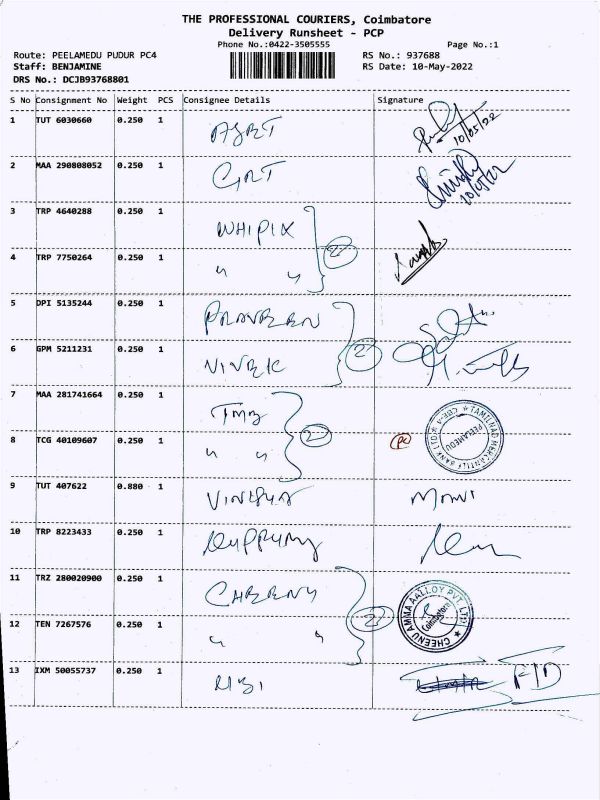 THE PROFESSIONAL COURIERS, Coimbatore
Delivery Runsheet - PCP
Phone No.:0422-3505555
Page No.:1
Route: PEELAMEDU PUDUR PC4
RS No.: 937688
Staff: BENJAMINE
RS Date: 10-May-2022
DRS No.: DCJB93768801
S No Consignment No Weight PCS Consignee Details Signature
1 TUT 6030660 0.250 1
10/05/22
2 MAA 290808052 0.250 1 GRT
10/05/22
3 TRP 4640288 0.250 1 WHIPIX
2
4 TRP 7750264 0.250 1 " "
5 DPI 5135244 0.250 1 PRAVEEN
2
6 GPM 5211231 0.250 1 VIVEK
7 MAA 281741664 0.250 1 TMB
2
TAMILNAD MERCANTILE BANK LTD
PEELAMEDU
8 TCG 40109607 0.250 1 " "
9 TUT 407622 0.880 1 MANI
10 TRP 8223433 0.250 1
11 TRZ 280020900 0.250 1
2
CHEENU AMMA AALLOY PVT LTD
Coimbatore
12 TEN 7267576 0.250 1 " "
13 IXM 50055737 0.250 1 F/D